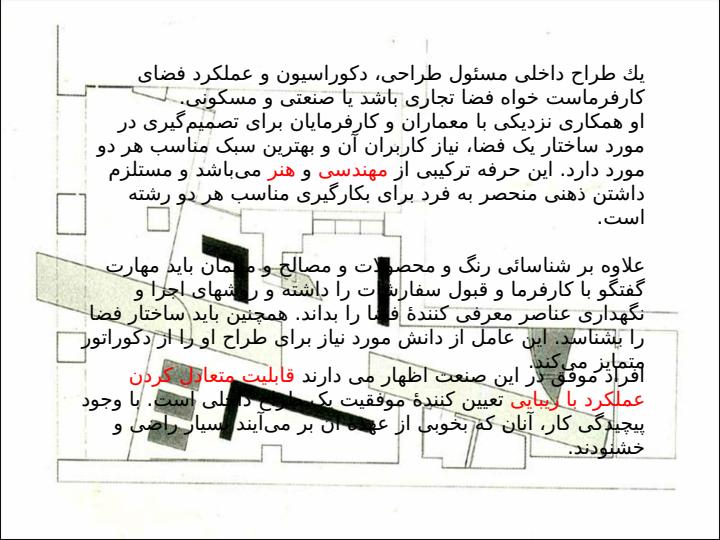 يك طراح داخلی مسئول طراحی، دکوراسیون و عملکرد فضای
کارفرماست خواه فضا تجاری باشد یا صنعتی و مسکونی.
او همکاری نزدیکی با معماران و کارفرمایان برای تصمیم‌گیری در
مورد ساختار یک فضا، نیاز کاربران آن و بهترین سبک مناسب هر دو
مورد دارد. این حرفه ترکیبی از مهندسی و هنر می‌باشد و مستلزم
داشتن ذهنی منحصر به فرد برای بکارگیری مناسب هر دو رشته
است.
علاوه بر شناسائی رنگ و محصولات و مصالح و مبلمان باید مهارت
گفتگو با کارفرما و قبول سفارشات را داشته و روشهای اجرا و
نگهداری عناصر معرفی کنندۀ فضا را بداند. همچنین باید ساختار فضا
را بشناسد. این عامل از دانش مورد نیاز برای طراح او را از دکوراتور
متمایز می‌کند.
افراد موفق در این صنعت اظهار می دارند قابلیت متعادل کردن
عملکرد با زیبایی تعیین کنندۀ موفقیت یک طراح داخلی است. با وجود
پیچیدگی کار، آنان که بخوبی از عهدۀ آن بر می‌آیند بسیار راضی و
خشنودند.